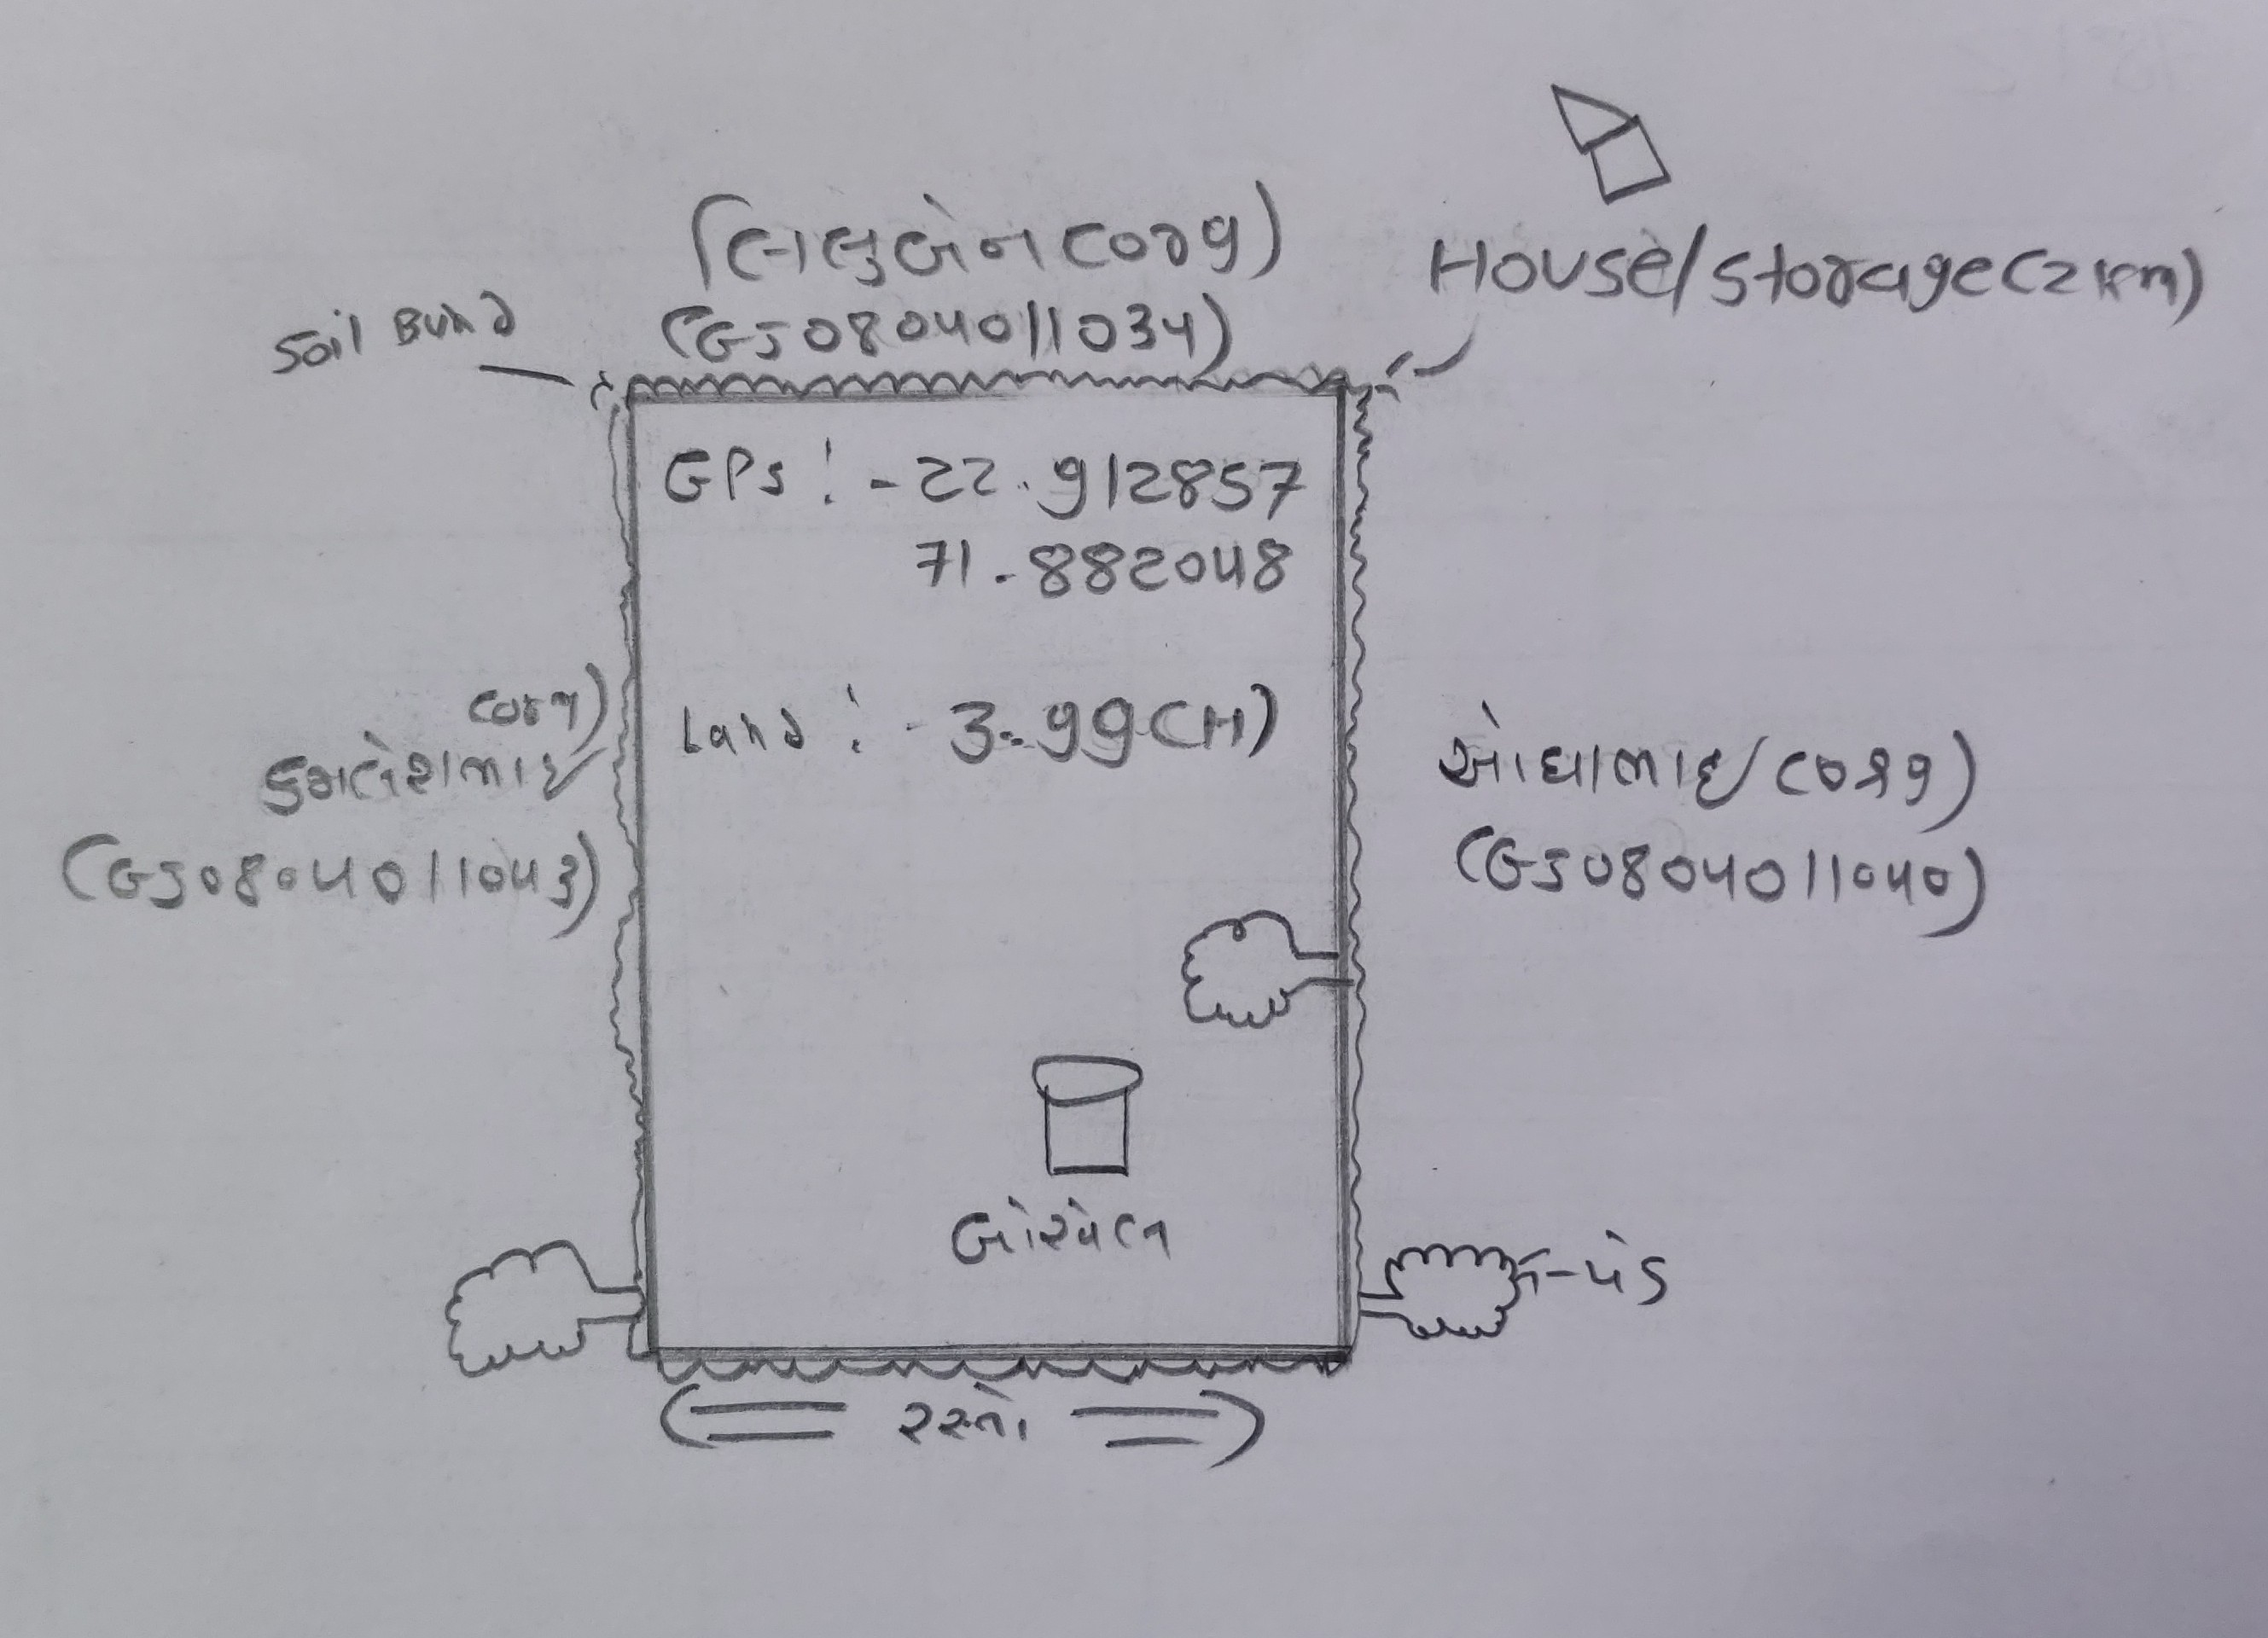 (લિલુબેન (org)
(GJ0804011034)
House/storage (2 km)
Soil Bund
GPS :- 22.912857
71.882048
Land :- 3.99 (H)
(org)
કમલેશભાઇ
(GJ0804011043)
ઓઘાભાઇ (org)
(GJ0804011040)
બોરવેલ
પેડ
રસ્તો